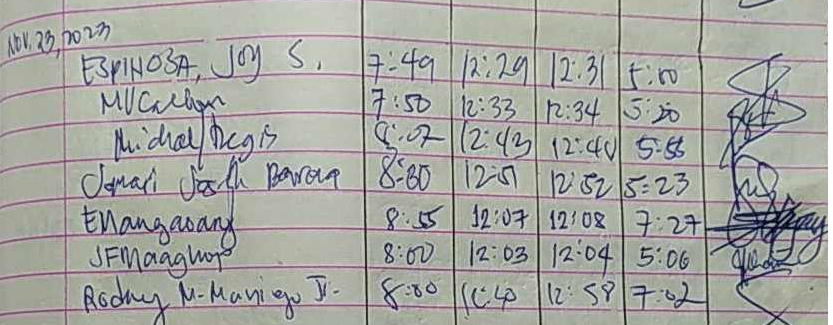 Nov. 23, 2023
ESPINOSA, Joy S. 7:49 12:29 12:31 5:00
7:50 12:33 12:34 5:20
Michael Regis 8:07 12:43 12:44 5:55
Josh 8:00 12:51 12:52 5:23
8:55 12:07 12:08 7:27
JFMaaghop 8:00 12:03 12:04 5:06
Rodny M. Maniego Jr. 8:00 12:58 7:02